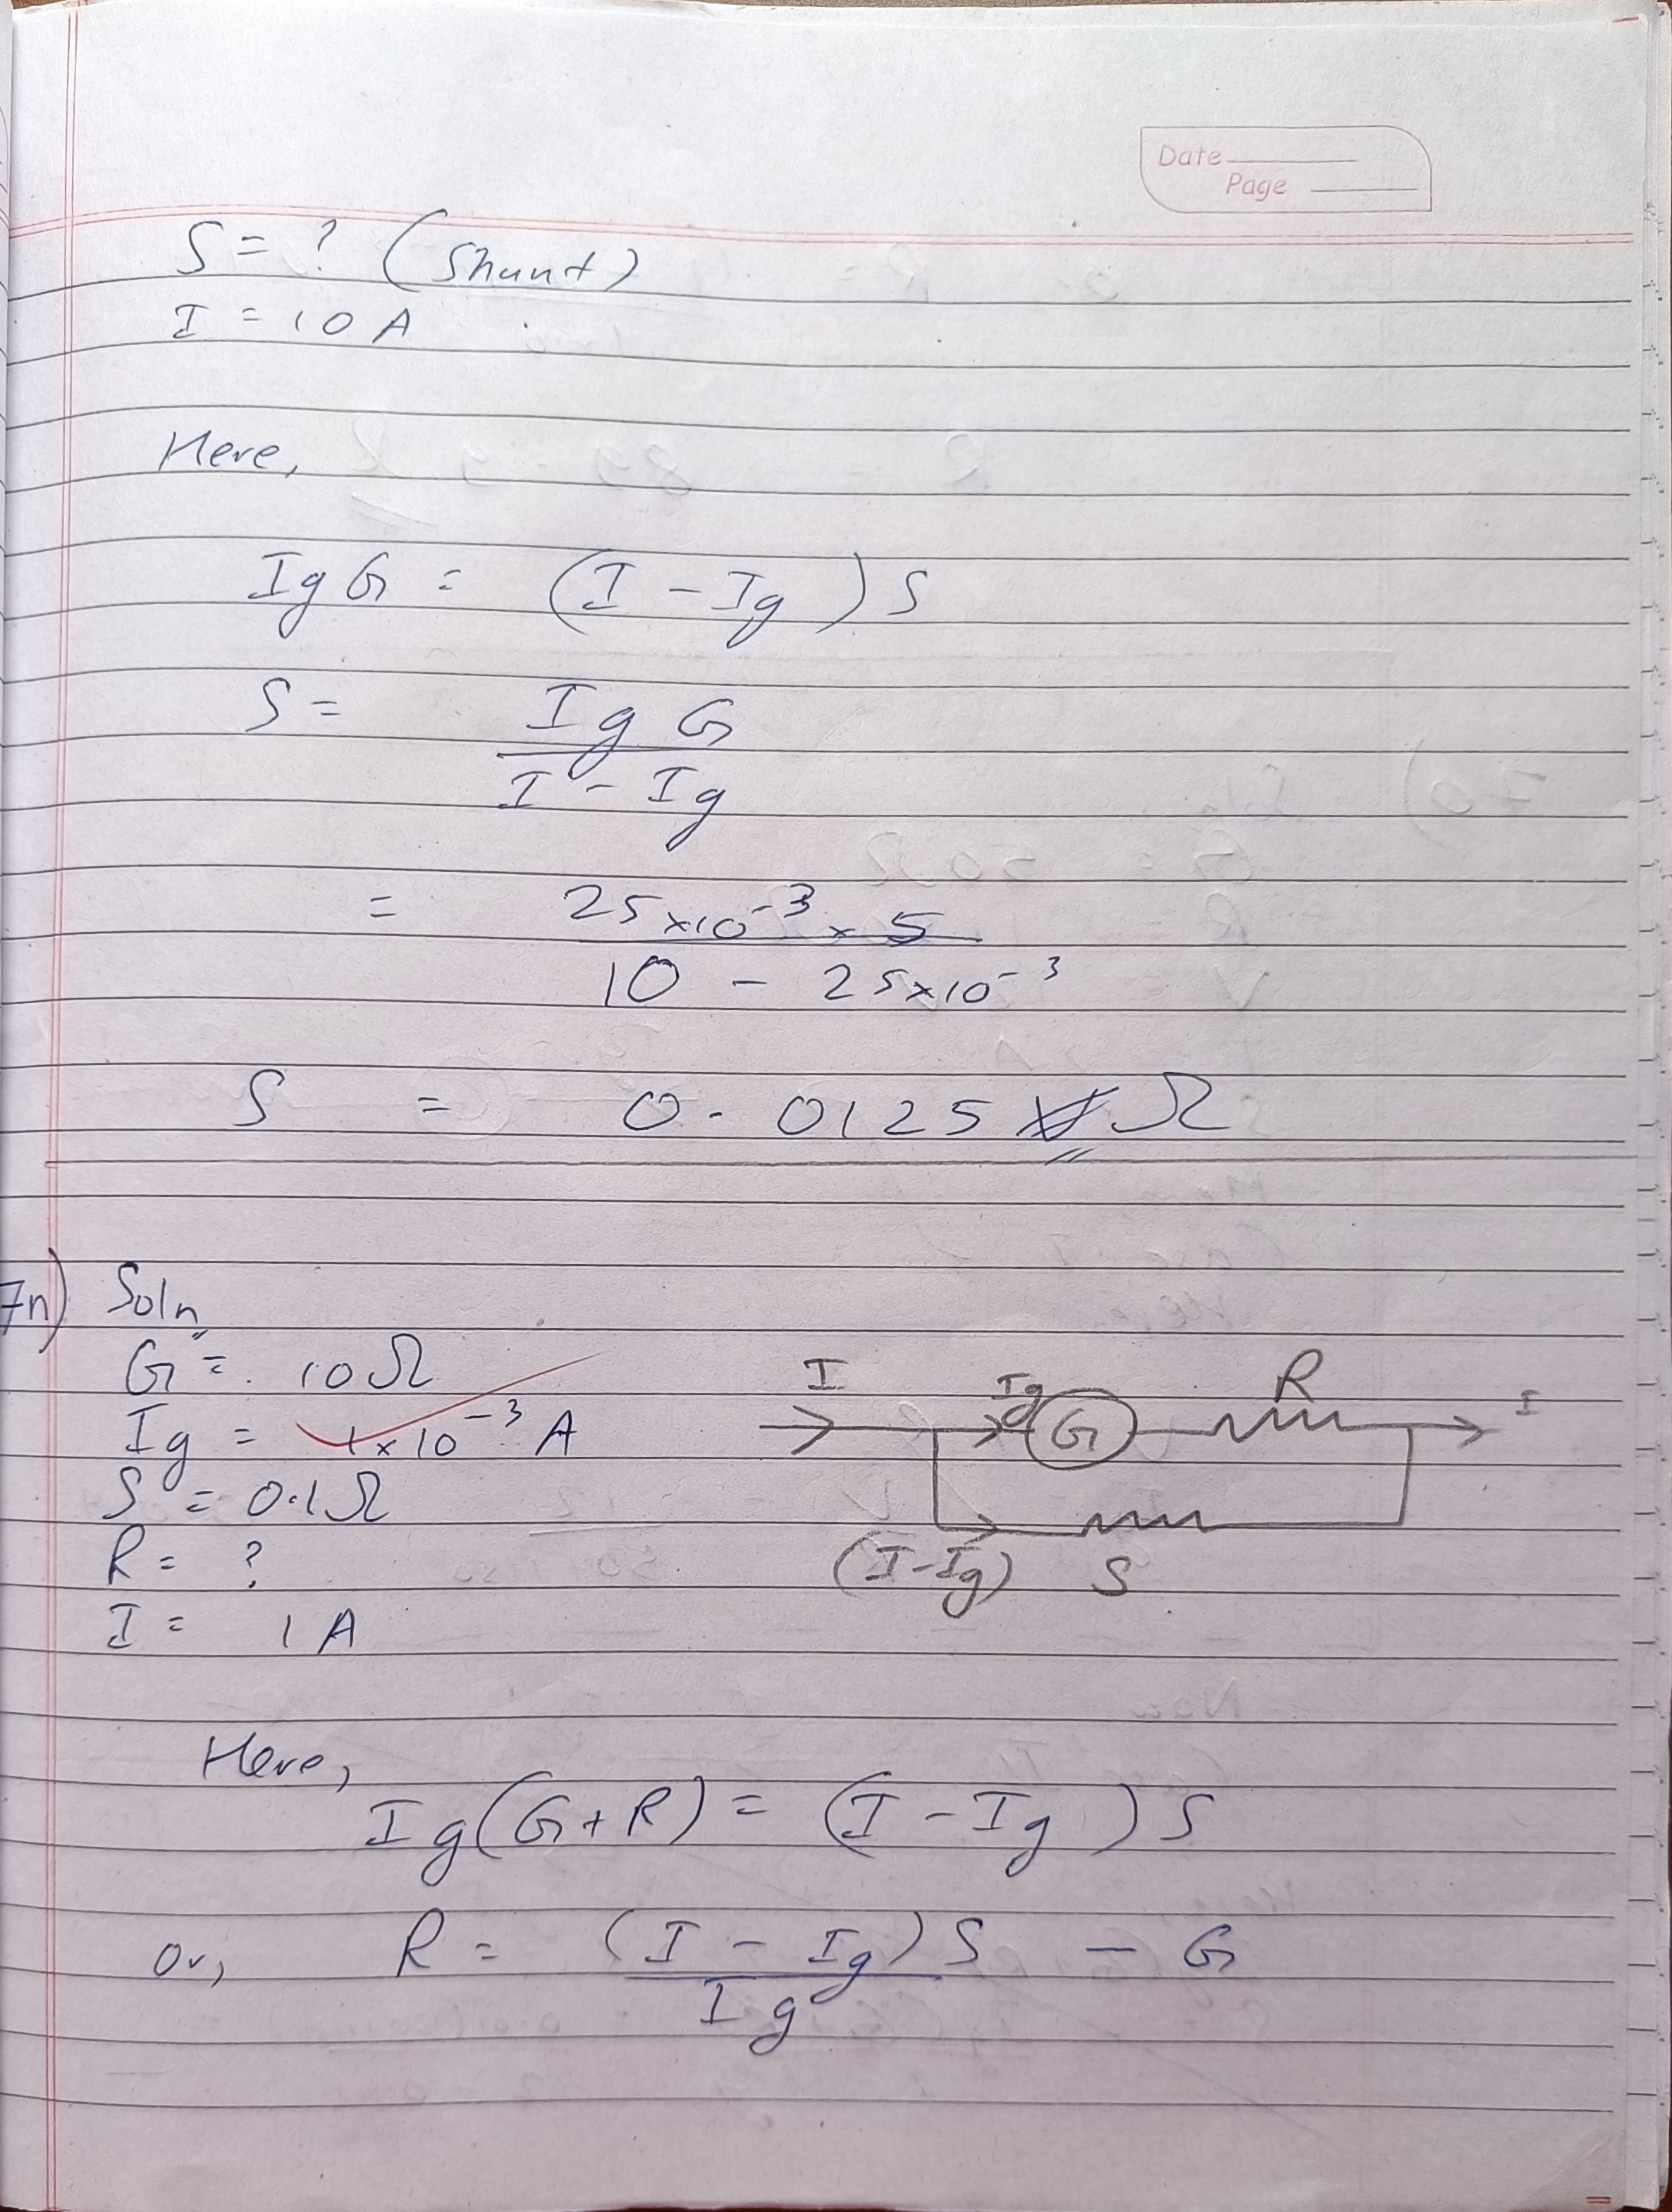 Date
Page
S = ? (Shunt)
I = 10 A
Here,
Ig G = (I - Ig) S
S = Ig G
I - Ig
= 25×10⁻³ × 5
10 - 25×10⁻³
S = 0.0125 Ω
7n) Soln
G = 10 Ω
Ig = 1×10⁻³ A
S = 0.1 Ω
R = ?
I = 1 A
I Ig G R I
(I-Ig) S
Here,
Ig(G+R) = (I - Ig) S
Or, R = (I - Ig) S - G
Ig